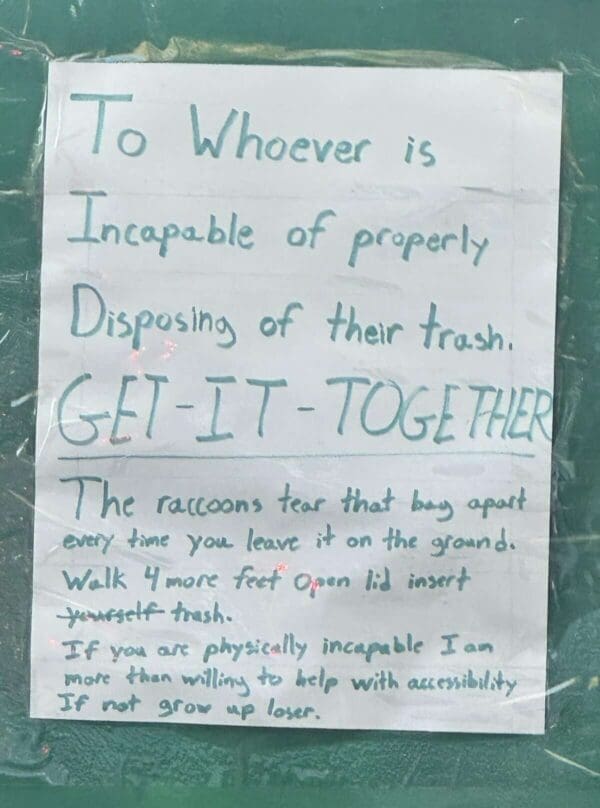 To Whoever is
Incapable of properly
Disposing of their trash.
GET-IT-TOGETHER
The raccoons tear that bag apart
every time you leave it on the ground.
Walk 4 more feet Open lid insert
yourself trash.
If you are physically incapable I am
more than willing to help with accessibility
If not grow up loser.